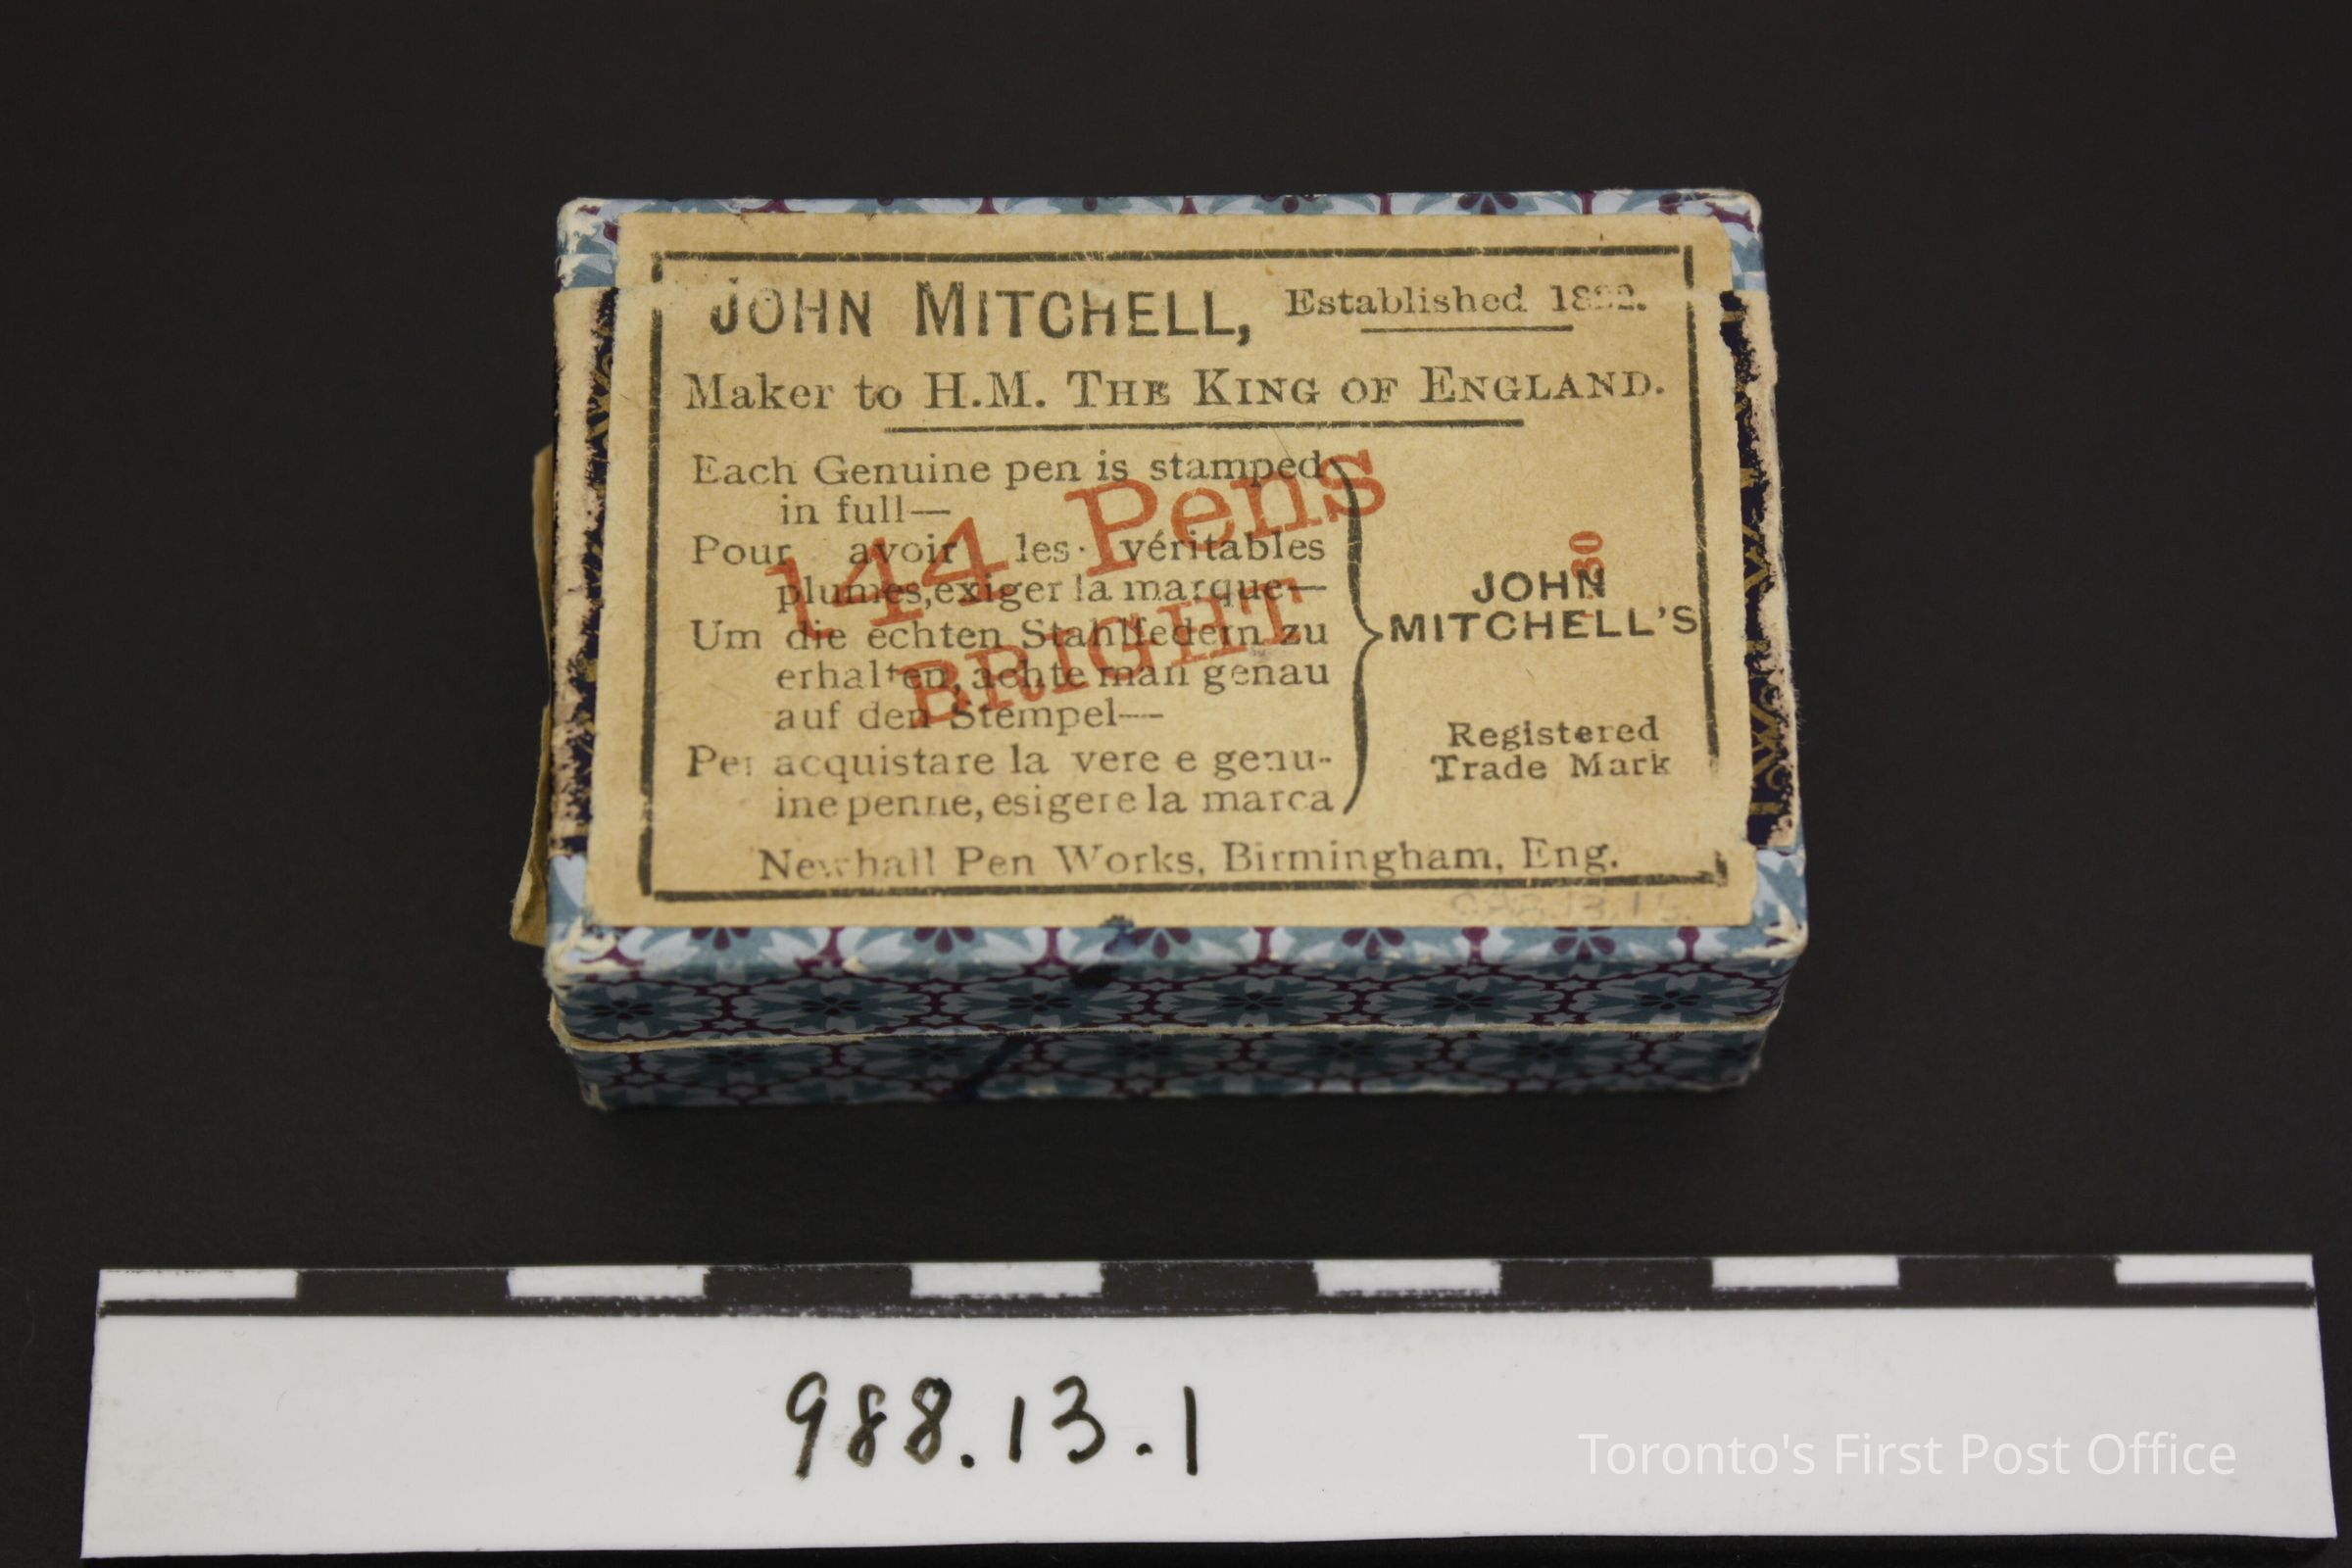 JOHN MITCHELL, Established 1822.
Maker to H.M. THE KING OF ENGLAND.
Each Genuine pen is stamped
in full—
Pour avoir les véritables
plumes, exiger la marque—
Um die echten Stahlfedern zu
erhalten, achte man genau
auf den Stempel—
Per acquistare la vere e genu-
ine penne, esigere la marca
144 Pens
BRIGHT
30
JOHN
MITCHELL'S
Registered
Trade Mark
Newhall Pen Works, Birmingham, Eng.
988.13.1
Toronto's First Post Office